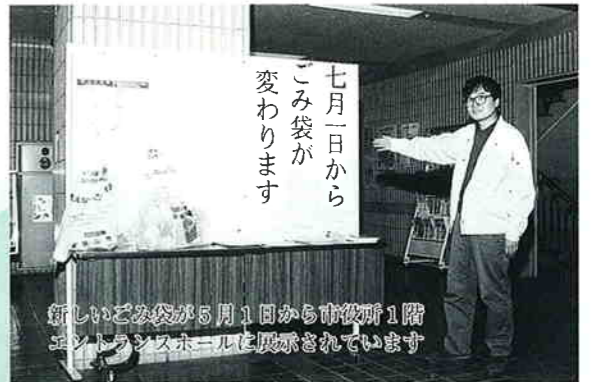 七月一日から
ごみ袋が
変わります
新しいごみ袋が５月１日から市役所１階
エントランスホールに展示されています